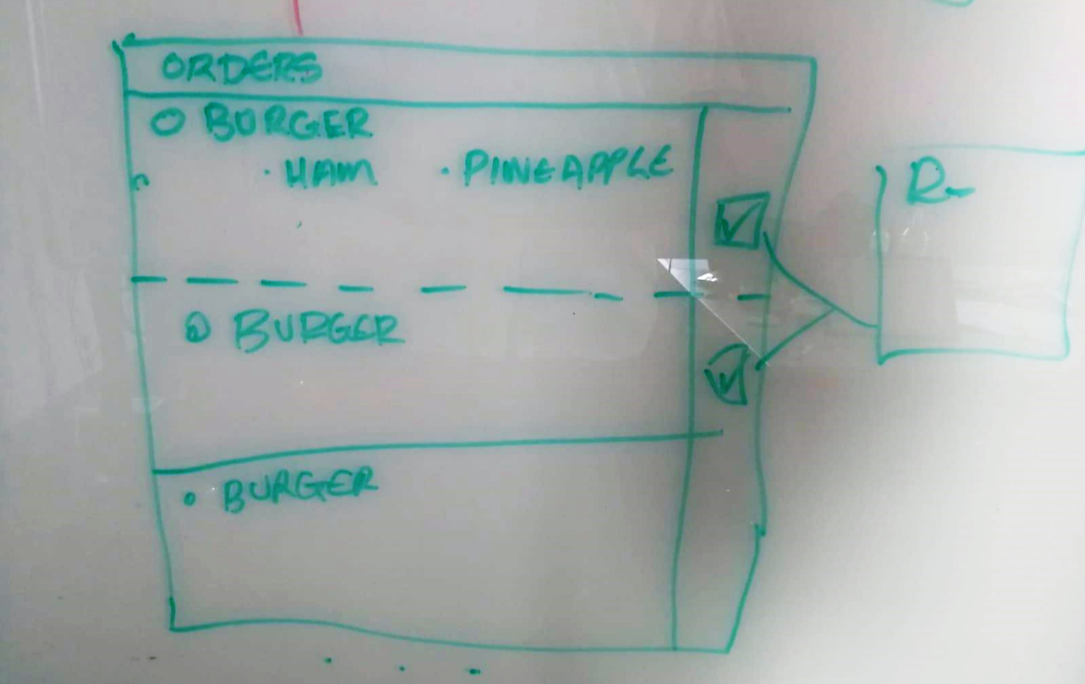 ORDERS
BURGER
· HAM · PINEAPPLE
BURGER
BURGER